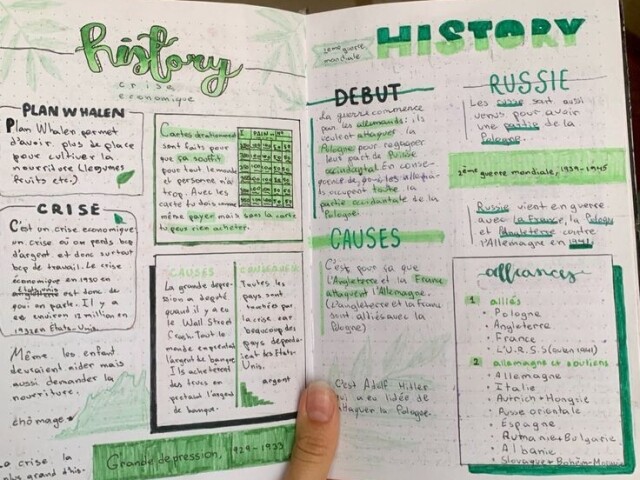 history
crise
economique
PLAN WHALEN
Plan Whalen permet
d'avoir plus de place
pour cultiver la
nourriture (legumes
fruits etc.)
CRISE
C'est un crise economique,
un crise où on perds bcp
d'argent, et donc surtout
bcp de travail. Le crise
économique en 1930 en
États-unis est donc de
qui on parle. Il y a
environ 12 million en
1932 en États-Unis.
Même les enfant
devraient aider mais
aussi demander la
nourriture.
chômage
La crise la
plus grand d'his-
Cartes de rationnement
sont faits pour
que ça souffit
pour tout le monde
et personne n'ai
trop. Avec les
carte tu dois quand
même payer mais sans la carte
tu peux rien acheter.
PAIN
CAUSES
La grande depre-
ssion a debuté
quand il y eu
le Wall Street
Crash. Tout le
monde emprentai
l'argent de banque.
Ils achetaient
des trucs en
pretant l'argent
de banque.
Toutes les
pays sont
touchés par
la crise car
beaucoup des
pays dependai-
ent des États-
Unis.
argent
Grande depression, 1929-1939
2ème guerre
mondiale
HISTORY
DEBUT
La guerre commence
par les allemands: ils
veulent attaquer la
Pologne pour regagner
leur part de Prusse
occidental. En conse-
quence de ça: les allema-
nds occupent toute la
partie occidantale de la
Pologne.
CAUSES
C'est pour ça que
l'Angleterre et la France
attaquent l'Allemagne.
(L'angleterre et la france
sont alliés avec la
Pologne)
C'est Adolf Hitler
qui a eu l'idée de
attaquer la Pologne.
RUSSIE
Les russe sont aussi
venus pour avoir
une partie de la
Pologne.
2ème guerre mondiale, 1939-1945
Russie vient en guerre
avec la France, la Pologne
et Angleterre contre
l'Allemagne en 1941.
alliances
1 alliés
• Pologne
• Angleterre
• France
• L'U.R.S.S (avan 1941)
2 allemagne et soutiens
• Allemagne
• Italie
• Autrich + Hongrie
• Russie orientale
• Espagne
• Rumanie + Bulgarie
• Albanie
• Slovaquie + Bohêm-Moravie